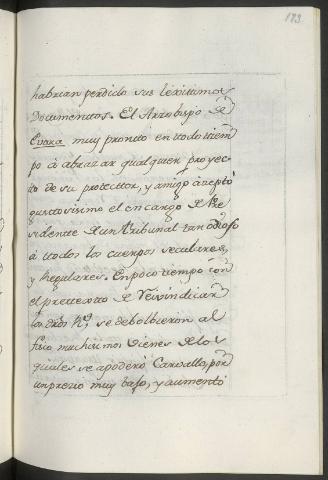 183.
habrian perdido sus lexittimos
Documenttos. El Arzobispo de
Evora muy pronto en ttodo ttiem
po â abrazar qualquier proyec
tto de su protecttor, y amigo àzeptò
gusttosisimo el encargo de Pre
sidente de un Tribunal tan odioso
â ttodos los cuerpos seculares,
y Regulares. En poco ttiempo con
el prettextto de Reivindicar
los dros Rs, se debolbieron al
fisco muchisimos vienes de los
quales se apoderò Carvallo, por
un prezio muy bajo, y aumentò